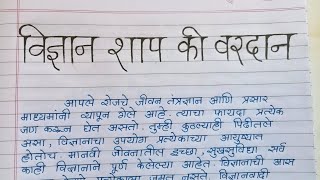 विज्ञान शाप की वरदान
आपले रोजचे जीवन तंत्रज्ञान आणि प्रसार
माध्यमांनी व्यापून गेले आहे. त्याचा फायदा प्रत्येक
जण करून घेत असतो. तुम्ही कुठल्याही पिढीतले
असा, विज्ञानाचा उपयोग प्रत्येकाच्या आयुष्यात
होतोच. मानवी जीवनातील इच्छा, सुखसुविधा सर्व
काही विज्ञानाने पूर्ण केलेल्या आहेत. विज्ञानाची आस